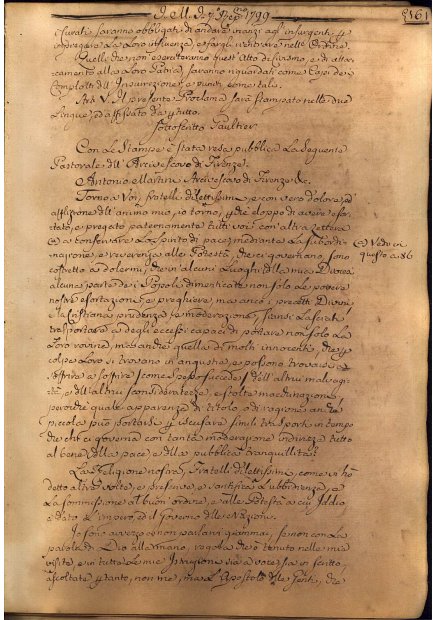 J. M. J. 7. 1799
161
curati saranno obbligati di andare inanzi agl'insurgenti, p
indregare la loro influenza, e fargli rientrare nell'Ordine.
Quelli che non eserciteranno quest'atto di Civismo, e di attac-
camento alla loro Patria, saranno riguardati come Capi dei
Complotti dell'Insurrezione, e puniti come tali.
Art. V. Il presente Proclama sarà stampato nelle due
Lingue, ed affissato da p tutto.
Sottoscritto Gaultier
Con le Stampe è stata resa pubblica la seguente
Pastorale dell'Arcivescovo di Firenze.
Antonio Martini Arcivescovo di Firenze &c.
Torno a Voi, fratelli dilettissimi, e con vero dolore, ed
afflizione dell'animo mio, io torno, che doppo di avere esor-
tato, e pregato paternamente tutti voi con altra lettera
a conservare lo spirito di pace mediante la subordi-
nazione, e reverenza alle Potestà, che ci governano, sono
costretto a dolermi, che in alcuni Luoghi della mia Diocesi
alcuna parte dei Popoli dimenticate non solo le povere
nostre esortazioni, e preghiere, ma anco i precetti Divini
e la Cristiana prudenza, e moderazione, siansi lasciati
trasportare a degli eccessi capaci di portare non solo la
loro rovina, ma anche quella di molti innocenti, che
colpa loro si trovano in angustie, e possono trovarsi
a soffrire come spesso succede dell'altrui malvagi-
tà, e dell'altrui sconsideratezza, e stolta macchinazione
perchè quale apparenza di titolo, o di ragione anche
piccola può portarsi p scusare simili trasporti in tempo
che chi ci governa con tanta moderazione indirizza tutto
al bene della pace, e della pubblica tranquillità?
La Religione nostra, Fratelli dilettissimi, come vi ho
detto altra volta, e prescrive, e santifica l'ubbidienza, e
la sommissione al buon ordine, e alle Potestà a cui Iddio
è dato l'impero, ed il governo delle Nazioni.
Io sono avvezzo a non parlarvi giammai, se non con la
parola di Dio alla mano, regola che ho tenuto nelle mie
visite, e in tutte le mie Istruzioni sia a voce, sia in scritto,
ascoltate p tanto, non me, ma l'Apostolo delle Genti, che
Vedi in
questo a 86